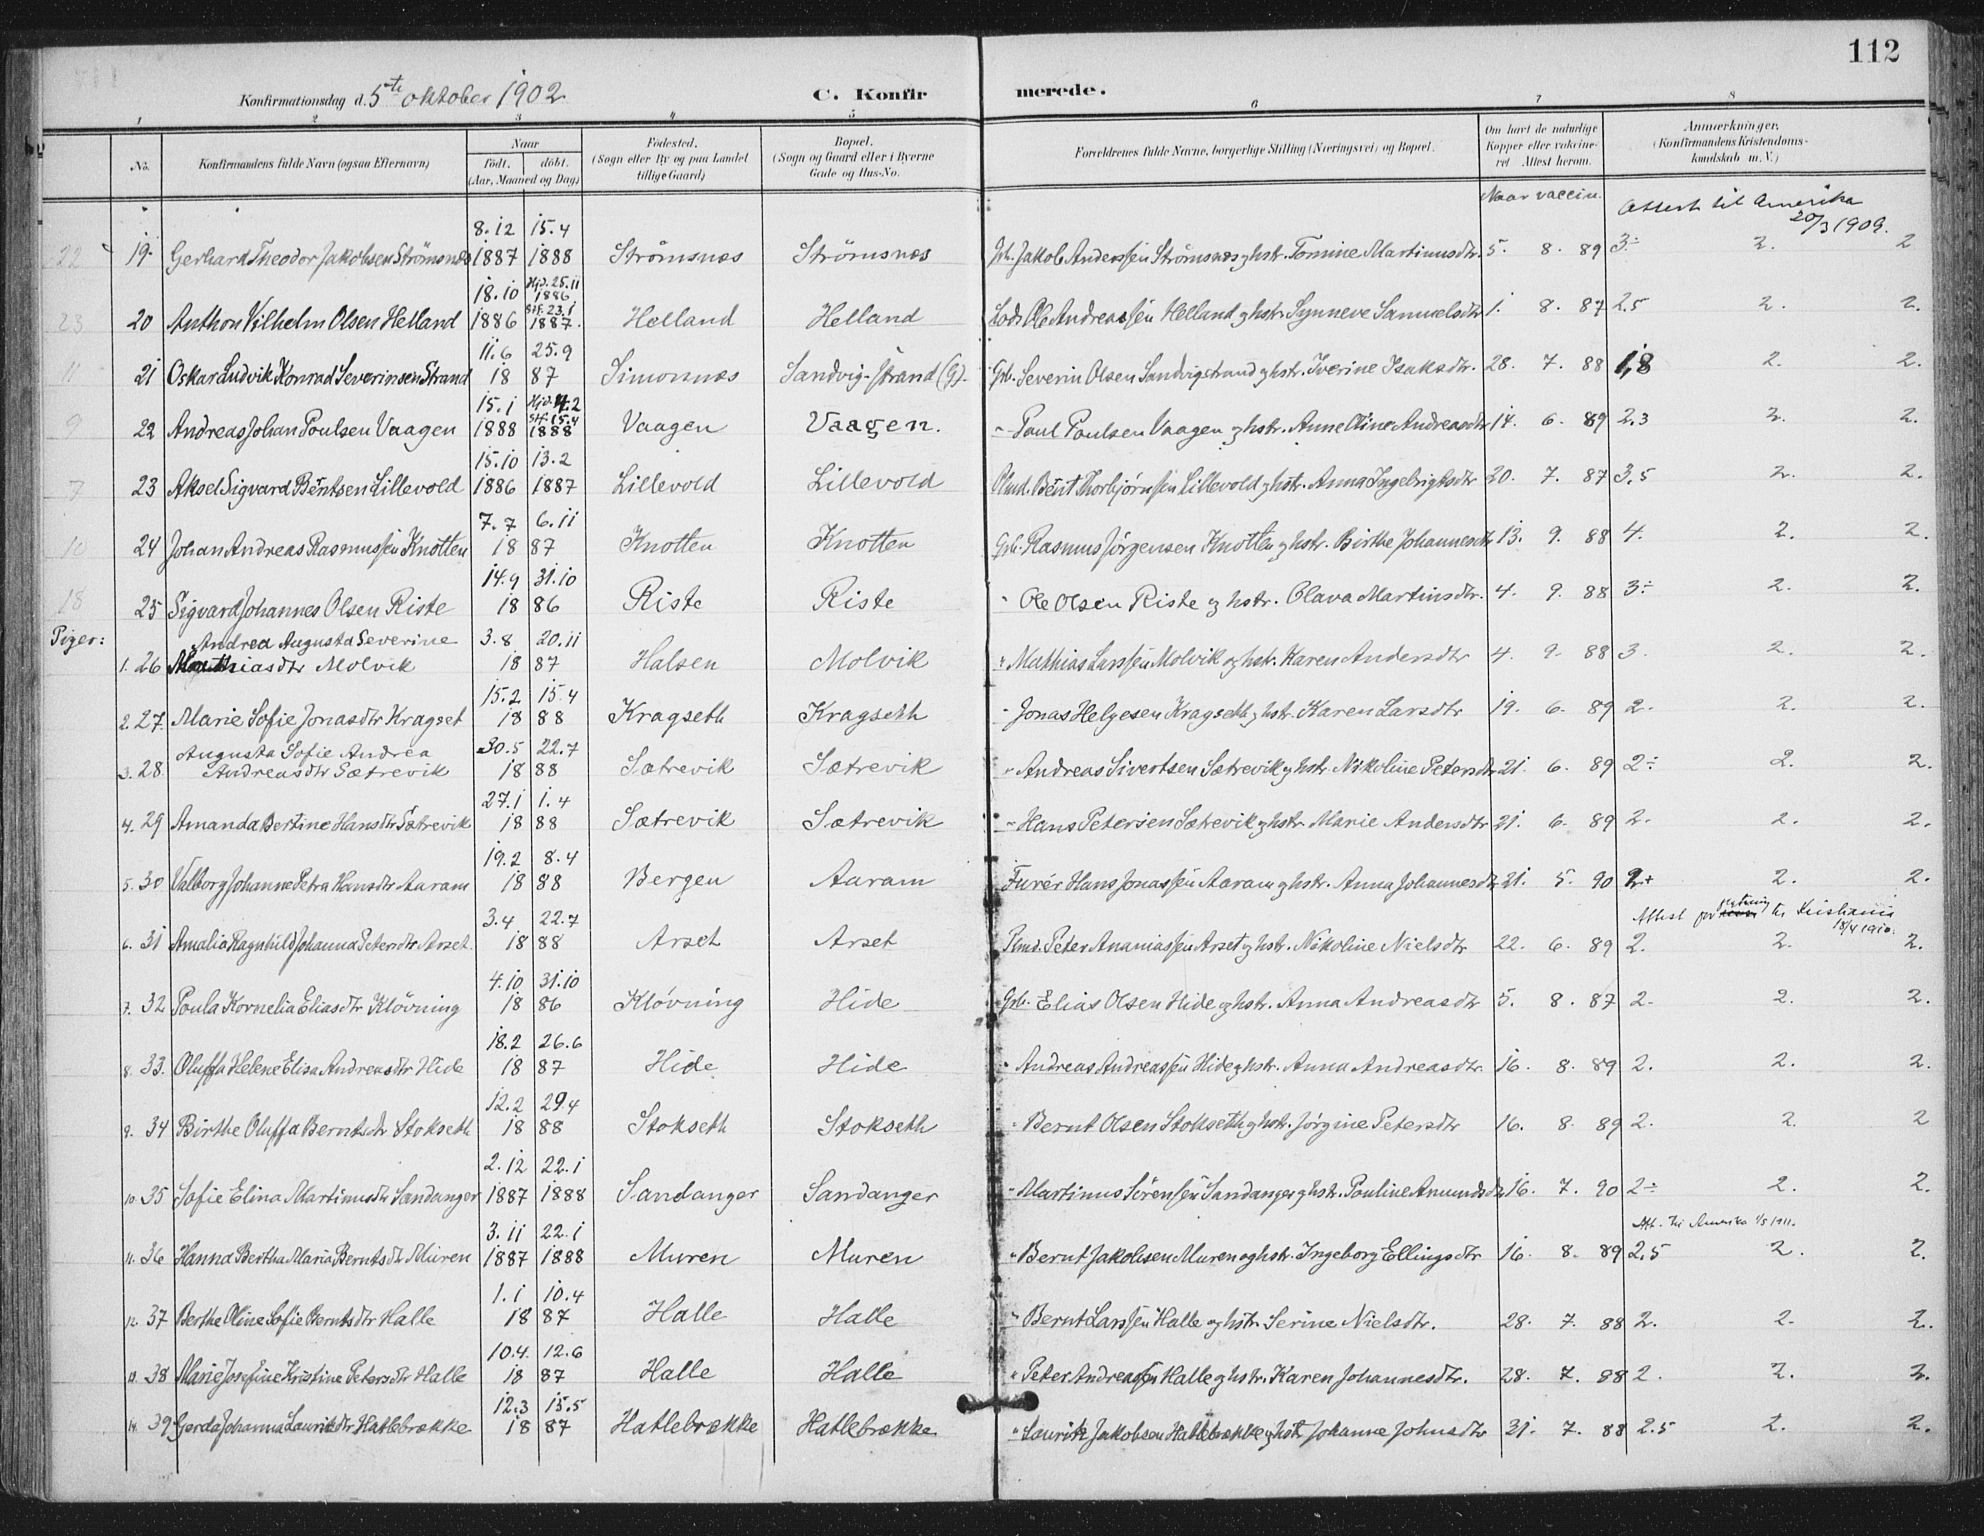 112
Konfirmationsdag d. 5te oktober 1902
C. Konfirmerede.
1 2 3 4 5 6 7 8
No. Konfirmandens fulde Navn (ogsaa Efternavn) Naar født. døbt. (Aar, Maaned og Dag) Fødested. (Sogn eller By og paa Landet tillige Gaard) Bopæl. (Sogn og Gaard eller i Byerne Gade og Hus-No. Forældrenes fulde Navne, borgerlige Stilling (Næringsvei) og Bopæl. Om havt de naturlige Kopper eller vaccineret Attest herom. Anmærkninger. (Konfirmandens Kristendomskundskab m. V.)
Naar vaccin. Attest til Amerika 20/3 1909.
22 19. Gerhard Theodor Jakobsen Strömsnes 8.12 1887 15.4 1888 Strømsnæs Strømsnæs Gbr. Jakob Anderssen Strømsnæs og hstr. Tomine Martinusdtr. 5. 8. 89 3÷ 2. 2
23 20 Anthon Vilhelm Olsen Helland 18.10 1886 Hjd. 25.11 1886 Stf. 23.1 1887. Helland Helland Lods Ole Andreassen Helland og hstr. Synneve Samuelsdtr 1. 8. 87 2.5 2. 2.
11 21 Oskar Ludvik Konrad Severinsen Strand 11.6 25.9 18 87 Simonsnæs Sandvig-strand (G). Gbr. Severin Olsen Sandvigstrand og hstr. Iverine Isaksdtr. 28. 7. 88 1,8 2. 2.
9 22 Andreas Johan Poulsen Vaagen 15.1 1888 Hjd. 4.2 Stf. 15.4 1888 Vaagen Vaagen. " Paul Poulsen Vaagen og hstr. Anne Oline Andreasdtr 14. 6. 89 2.3 2. 2.
7 23 Aksel Sigvard Bentsen Lillevold 15.10 1886 13.2 1887 Lillevold Lillevold Bent Thorbjørnsen Lillevold og hstr. Anna Ingebrigtsdtr 20. 7. 87 3,5 2. 2.
10 24 Johan Andreas Rasmussen Knotten 7.7 6.11 18 87 Knotten Knotten Gbr. Rasmus Jørgensen Knotten og hstr. Birthe Johannesdtr 13. 9. 88 4. 2. 2.
18 25 Sigvard Johannes Olsen Riste 14.9 31.10 18 86 Riste Riste " Ole Olsen Riste og hstr. Olava Martinsdtr. 4. 9. 88 3÷ 2. 2.
Piger: Andrea Augusta Severine
1. 26 Mathiasdtr Molvik 3.8 20.11 18 87 Halsen Molvik " Mathias Larssen Molvik og hstr. Karen Andersdtr 4. 9. 88 3. 2. 2.
2. 27. Marie Sofie Jonasdtr Kragset 15.2 15.4 18 88 Kragseth Kragseth " Jonas Helgesen Kragseth og hstr. Karen Larsdtr 19. 6. 89 2. 2. 2.
Augusta Sofie Andrea
3. 28. Andreasdtr Sætrevik 30.5 22.7 18 88 Sætrevik Sætrevik " Andreas Sivertsen Sætrevik og hstr. Nikoline Petersdtr 21. 6. 89 2÷ 2. 2.
4. 29 Amanda Bertine Hansdtr Sætrevik 27.1 1.4 18 88 Sætrevik Sætrevik " Hans Petersen Sætrevik og hstr. Marie Andersdtr 21. 6. 89 2. 2. 2.
5. 30 Valborg Johanne Petra Hansdtr Aaram 19.2 8.4 18 88 Bergen Aaram Furér Hans Jonassen Aaram og hstr. Anna Johannesdtr 21. 5. 90 2+ 2. 2.
Attest til Kristiania 18/4 1910.
6. 31 Amalia Ragnhild Johanna Petersdtr Arset 3.4 22.7 18 88 Arset Arset Peter Ananiassen Arset og hstr. Nikoline Nielsdtr 22. 6. 89 2. 2. 2.
7. 32 Poula Kornelia Eliasdtr Klövning 4.10 31.10 18 86 Kløvning Hide Gbr. Elias Olsen Hide og hstr. Anna Andreasdtr 5. 8. 87 2. 2. 2.
8. 33. Oluffa Helene Elisa Andreasdtr Hide 18.2 26.6 18 87 Hide Hide " Andreas Andreassen Hide og hstr. Anna Andreasdtr. 16. 8. 89 2. 2. 2.
9. 34 Birthe Oluffa Berntsdtr Stokseth 12.2 29.4 18 88 Stokseth Stokseth " Bernt Olsen Stokseth og hstr. Jørgine Petersdtr 16. 8. 89 2. 2. 2
10. 35 Sofie Elina Martinusdtr Sandanger 2.12 1887 22.1 1888 Sandanger Sandanger " Martinus Sörensen Sandanger og hstr. Pauline Amundsdtr 16. 7. 90 2÷ 2. 2.
Att. til Amerika 1/5 1911.
11. 36 Hanna Bertha Maria Berntsdtr Muren 3.11 1887 22.1 1888 Muren Muren " Bernt Jakobsen Muren og hstr. Ingeborg Ellingsdtr 16. 8. 89 2,5 2. 2.
12. 37 Berthe Oline Sofie Berntsdtr Halle 1.1 10.4 18 87 Halle Halle " Bernt Larssen Halle og hstr. Serine Nielsdtr. 28. 7. 88 2. 2. 2.
13. 38 Marie Josefine Kristine Petersdtr Halle 10.4. 12.6 18 87 Halle Halle " Peter Andreassen Halle og hstr. Karen Johannesdtr. 28. 7. 88 2. 2. 2.
14 39 Gerda Johanna Lauritsdtr Hatlebrække 12.3 15.5 18 87 Hatlebrække Hatlebrække " Laurits Jakobsen Hatlebrække og hstr Johanne Johnsdtr 31. 7. 88 2.5 2. 2.